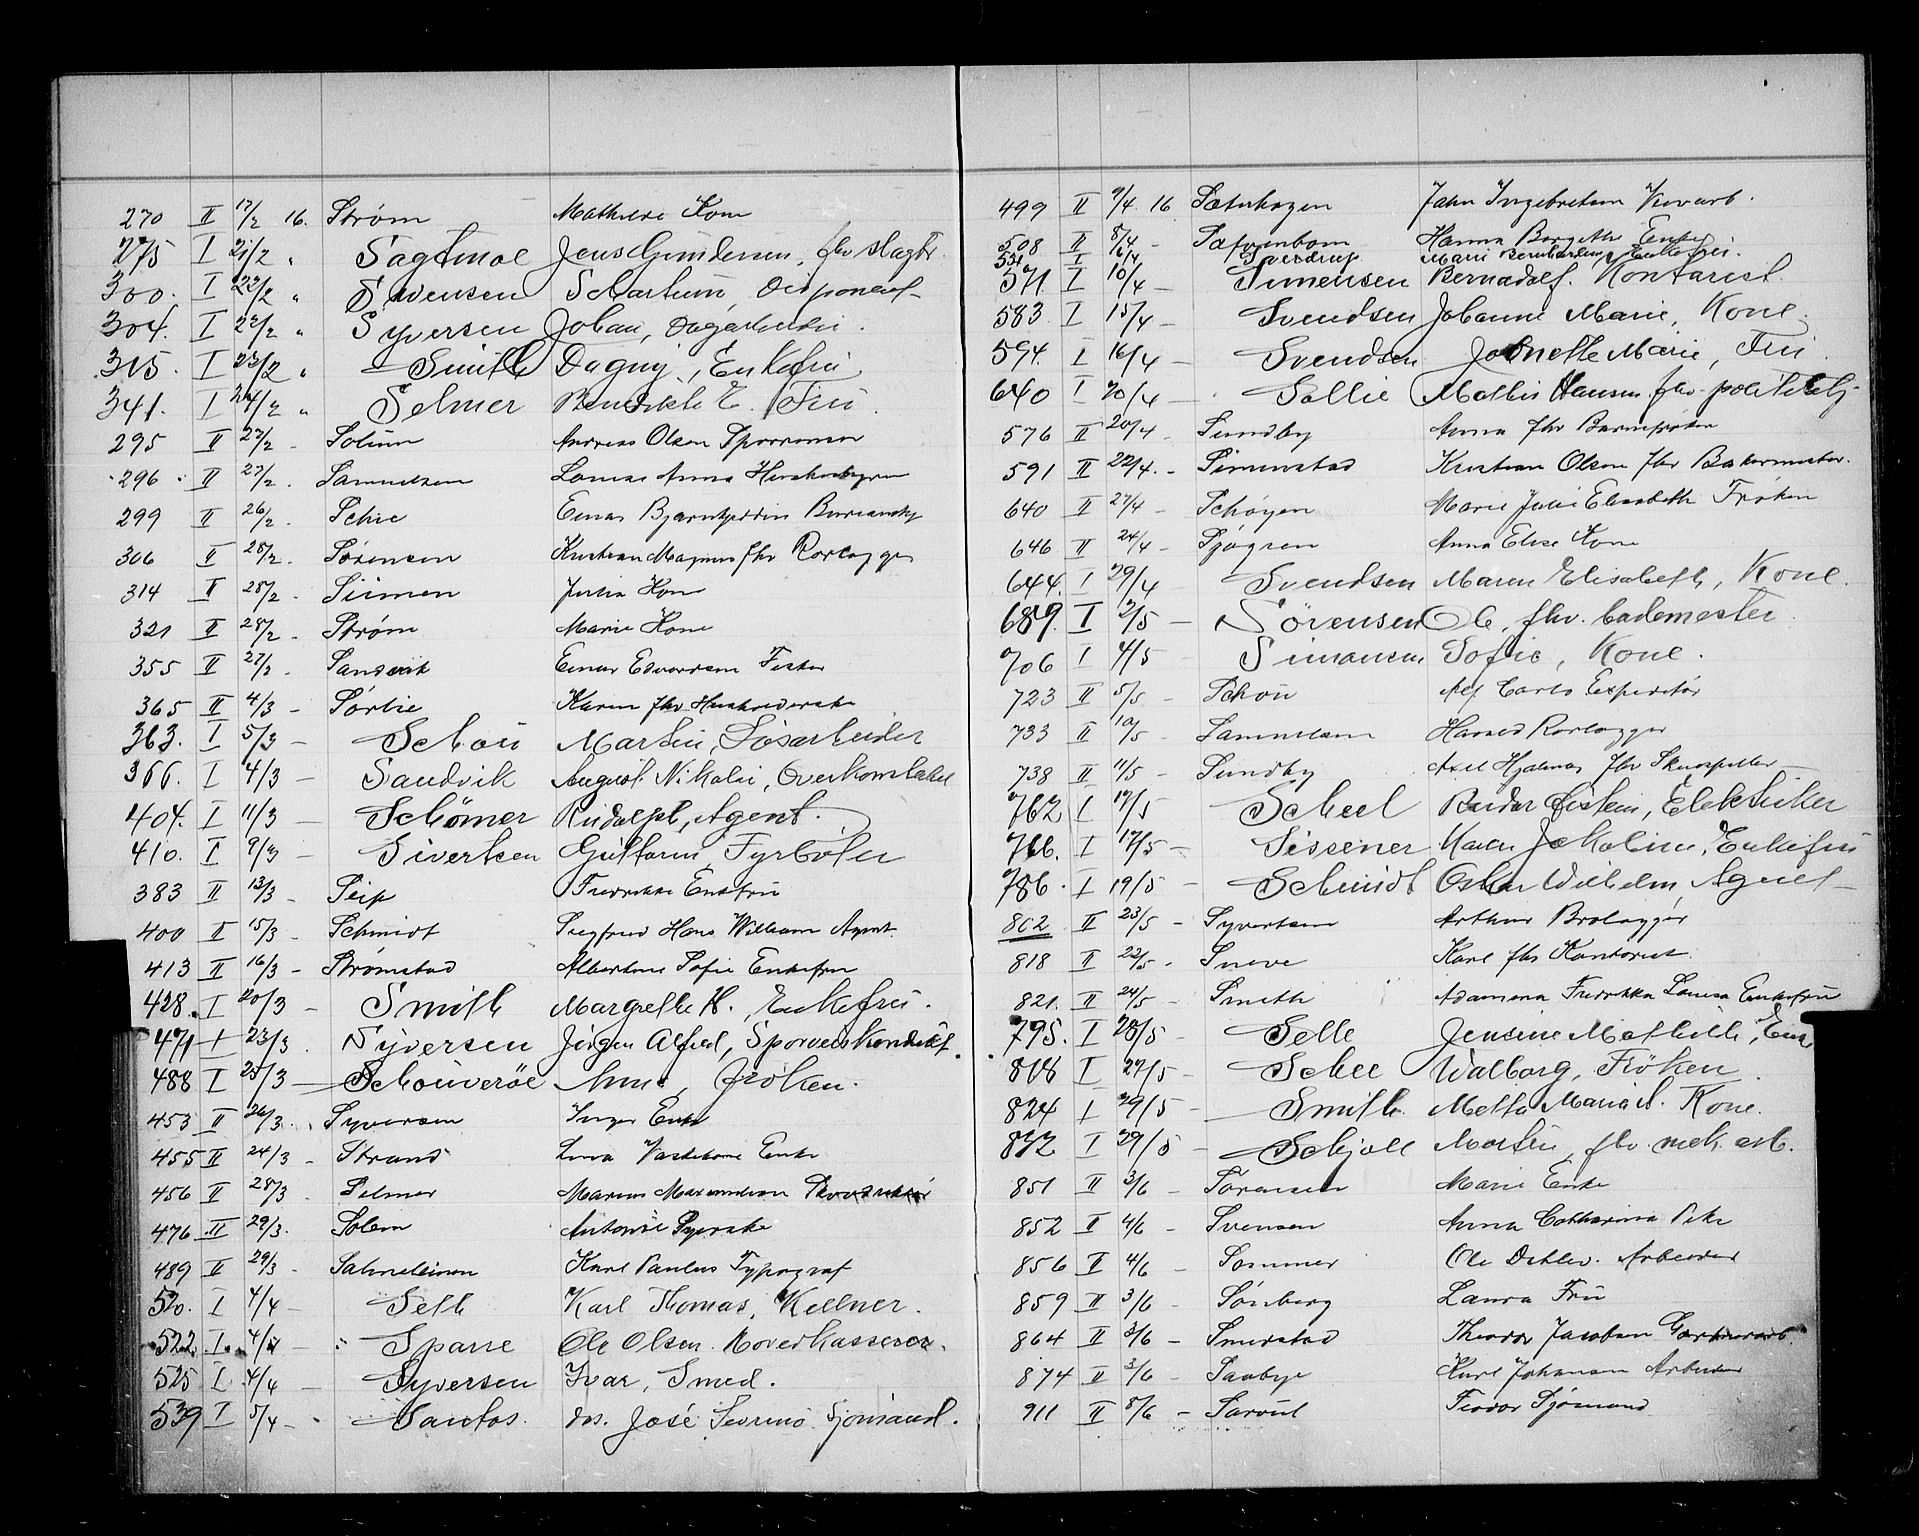 270 II 17/2 16. Strøm Mathilde Kone
275 I 21/2 " Sagtmoe Jens Gundersen, fhv. slagtr.
300. I 22/2 " Svensen S. Martinus, Disponent
304. I 22/2 " Syversen Johan, Dagarbeider.
315. I 23/2 " Smith Dagny, Enkefru
341. I 24/2 " Selmer Benedikte E. Fru.
295 II 27/2 - Solum Andreas Olsen
296 II 27/2. Samuelsen Louise Anna
299 II 26/2. Schie Einar
306 II 28/2. Sørensen Kristian Magnus fhv Rørlægger
314 II 28/2 - Simen Julia Kone
321 II 28/2 - Strøm Marie Kone
355 II 27/2. Sandvik Einar Edvardsen Fisker
365 II 4/3 - Sørlie Karen fhv Husholderske
363. I 5/3 - Schou Martin, Løsarbeider
366. I 4/3 - Sandvik August Nikolai, Overkonstabel
404. I 11/3 - Schömer Rudolph, Agent.
410. I 9/3 - Sivertsen Guttorm, Fyrbøter
383 II 13/3 - Seip Fredrikke Enkefru
400 II 15/3 - Schmidt Siegfried Hans William Agent.
413 II 16/3 - Strømstad Albertine Sofie Enkefru
428. I 20/3 - Smith Margrethe H., Enkefru.
471 I 23/3. Syversen Jörgen Alfred, Sporveiskonduktør.
488 I 25/3 - Schouveröe Anne, fröken.
453 II 26/3. Syversen Inger Enke
455 II 24/3 - Strand Enke
456 II 28/3. Selmer Marius
476 II 29/3. Solem Antonie Syerske
489 II 29/3 - Karl Paulus Typograf
520. I 4/4 - Seth Karl Thomas, Kellner.
522. I. 4/4 - Sparre Ole Olsen. Hovedkasserer.
525 I 4/4 - Syversen Ivar, Smed.
539 I 5/4 - Santos. dos. José Sjömand.
499 II 9/4 16 Sæterhagen John Ingebretsen
508 II 8/4 - Hanna Enke
I 6/4 Sverdrup Marie Enkefru.
571 I 10/4 - Simensen Bernadolf. Kontorist.
583 I 15/4 - Svendsen Johanne Marie, Kone.
594. I 16/4 - Svendsen Jonette Marie, Fru.
640 I 20/4 - Sollie Mathis Hansen fhv. politibetj.
576 II 20/4 - Sundby Anna fhv
591 II 22/4. - Simenstad Kristian Olsen fhv Bakermester.
640 II 27/4 - Schøyen Marie Julie Elisabeth Frøken
646 II 24/4 - Sjøgren Anna Elise Kone
644. I 29/4 Svendsen Maren Elisabeth, Kone.
689. I 2/5 - Sörensen Ole, fhv. bademester.
706 I 4/5 Simonsen Sofie, Kone.
723 II 5/5 - Schou Alf Carlo Expeditør
733 II 10/5 - Samuelsen Harald Rørlægger
738 II 11/5 - Sundby Axel Hjalmar fhv Skuespiller
762 I 14/5 Scheel Reidar Eistein, Elektriker
766. I 17/5 - Sissener Karen Jakobine, Enkefru
786. I 19/5 - Schmidt Oskar Wilhelm, Agent
802 II 23/5 - Syvertsen Arthur Brolægger
818 II 22/5 - Sneve Karl fhv Kontorist.
821. II 24/5 - Smith Adamina Fredrikke Lovisa Enkefru
795. I 28/5 - Selle Jensine Mathilde, Enke
818 I 27/5 - Schee Walborg, Fröken.
824 I 29/5 - Smith. Mette Maria A. Kone.
832 I 29/5 - Schjoll Martin, fhv. mek. arb.
851 II 3/6 - Sørensen Marie Enke
852 II 4/6 - Svensen Anna Catharina Pike
856 II 4/6 - Sommer Ole Detlev. Arbeider
859 II 3/6 - Sönberg Laura Fru
864 II 3/6 - Smerstad Theodor Jacobsen
874 II 3/6 - Saxbye Karl Johansen Arbeider
911 II 8/6 - Feodor Sjømand